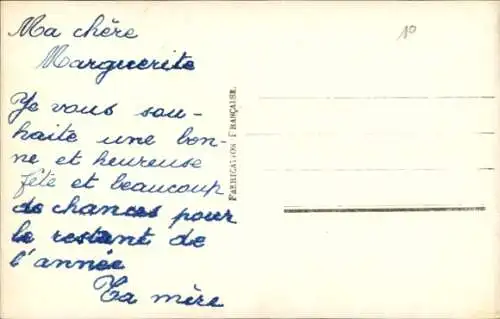 Ma chère
Marguerite
Je vous sou-
haite une bon-
ne et heureuse
fête et beaucoup
de chances pour
le restant de
l'année
Ta mère
FABRICATION FRANÇAISE
10